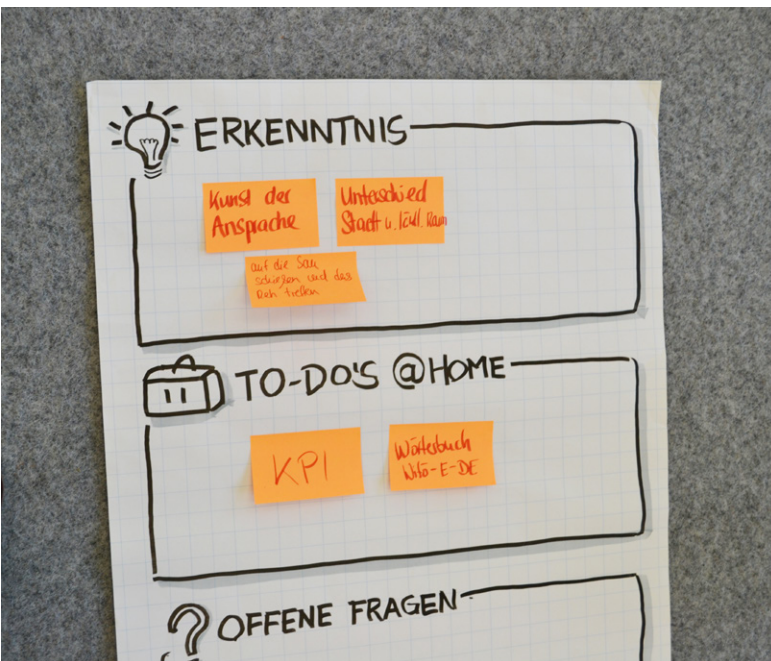 ERKENNTNIS
Kunst der
Ansprache
Unterschied
Stadt u. ländl. Raum
auf die Sau
schießen und das
Reh treffen
TO-DO'S @HOME
KPI
Wörterbuch
WiFö-E-DE
OFFENE FRAGEN